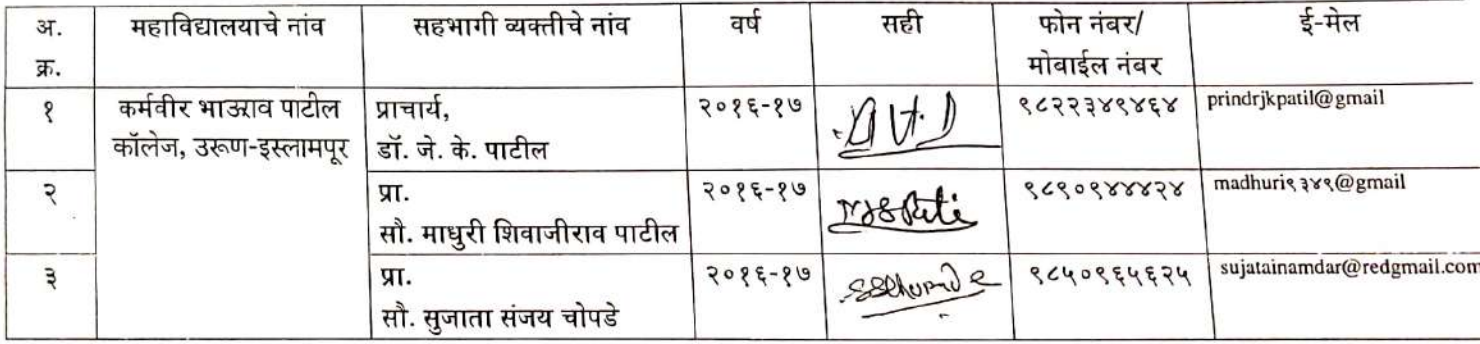 अ. क्र. महाविद्यालयाचे नांव सहभागी व्यक्तीचे नांव वर्ष सही फोन नंबर/ मोबाईल नंबर ई-मेल
१ कर्मवीर भाऊराव पाटील कॉलेज, उरूण-इस्लामपूर प्राचार्य, डॉ. जे. के. पाटील २०१६-१७ ९८२२३४९४६४ prindrjkpatil@gmail
२ प्रा. सौ. माधुरी शिवाजीराव पाटील २०१६-१७ ९८९०९४४४२४ madhuri९३४९@gmail
३ प्रा. सौ. सुजाता संजय चोपडे २०१६-१७ ९८५०९६५६२५ sujatainamdar@redgmail.com